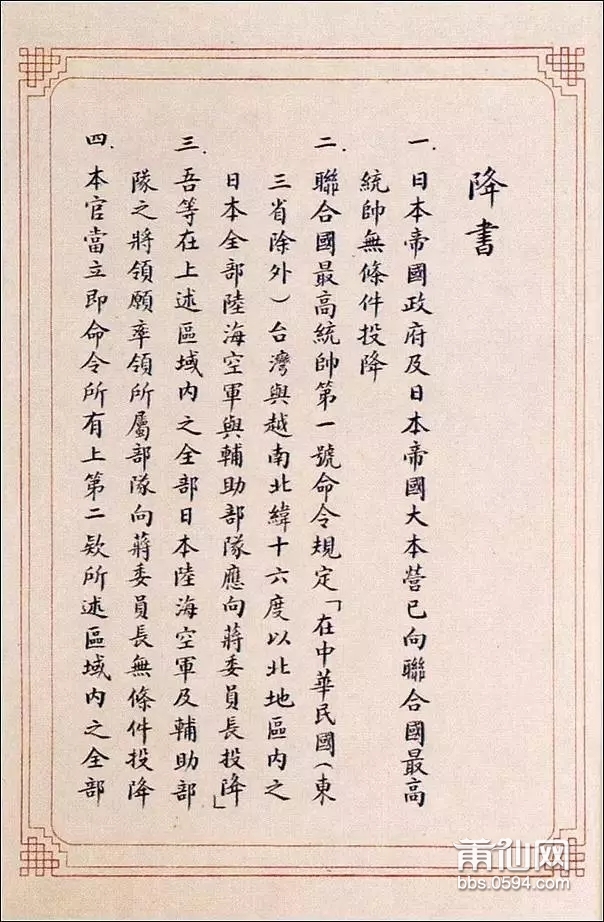 降書
一．日本帝國政府及日本帝國大本營已向聯合國最高
統帥無條件投降
二．聯合國最高統帥第一號命令規定「在中華民國（東
三省除外）台灣與越南北緯十六度以北地區內之
日本全部陸海空軍與輔助部隊應向蔣委員長投降」
三．吾等在上述區域內之全部日本陸海空軍及輔助部
隊之將領願率領所屬部隊向蔣委員長無條件投降
四．本官當立即命令所有上第二欵所述區域內之全部
莆仙网
bbs.0594.com